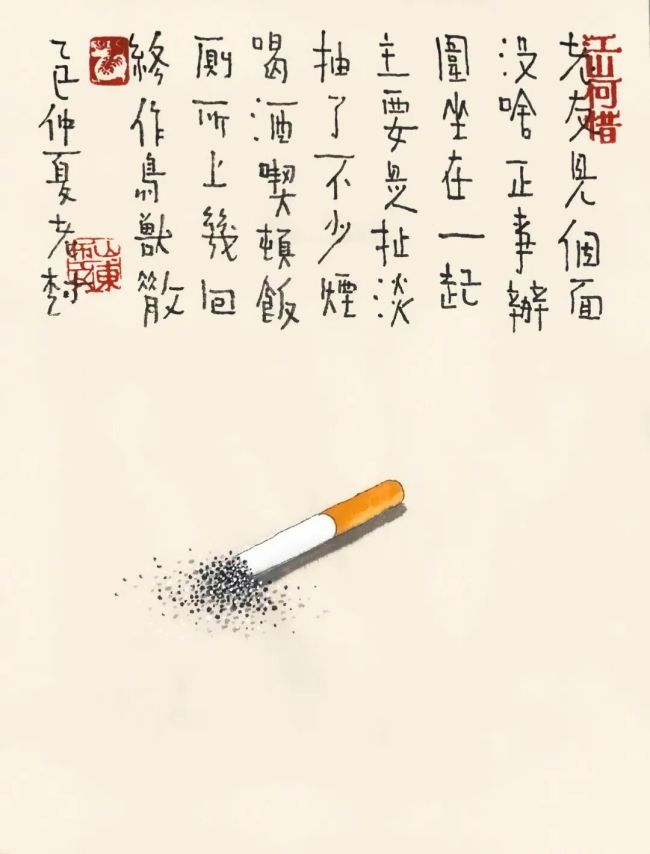 老友見個面
没啥正事辦
圍坐在一起
主要是扯淡
抽了不少煙
喝酒喫頓飯
厠所上幾回
終作鳥獸散
乙巳仲夏老樹
江山何惜
山東